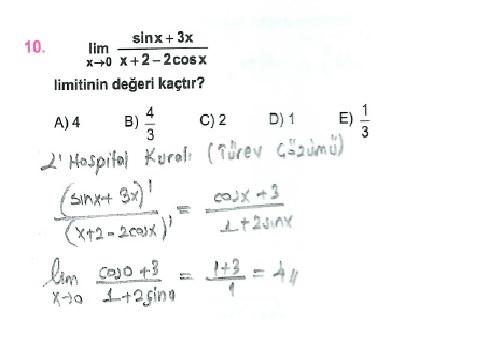 10. lim x→0 (sinx + 3x)/(x + 2 – 2cosx)
limitinin değeri kaçtır?
A) 4 B) 4/3 C) 2 D) 1 E) 1/3
L'Hospital Kuralı (Türev Çözümü)
(sinx + 3x)'/(x+2-2cosx)' = (cosx + 3)/(1+2sinx)
lim x→0 (cos0 + 3)/(1+2sin0) = (1+3)/1 = 4//